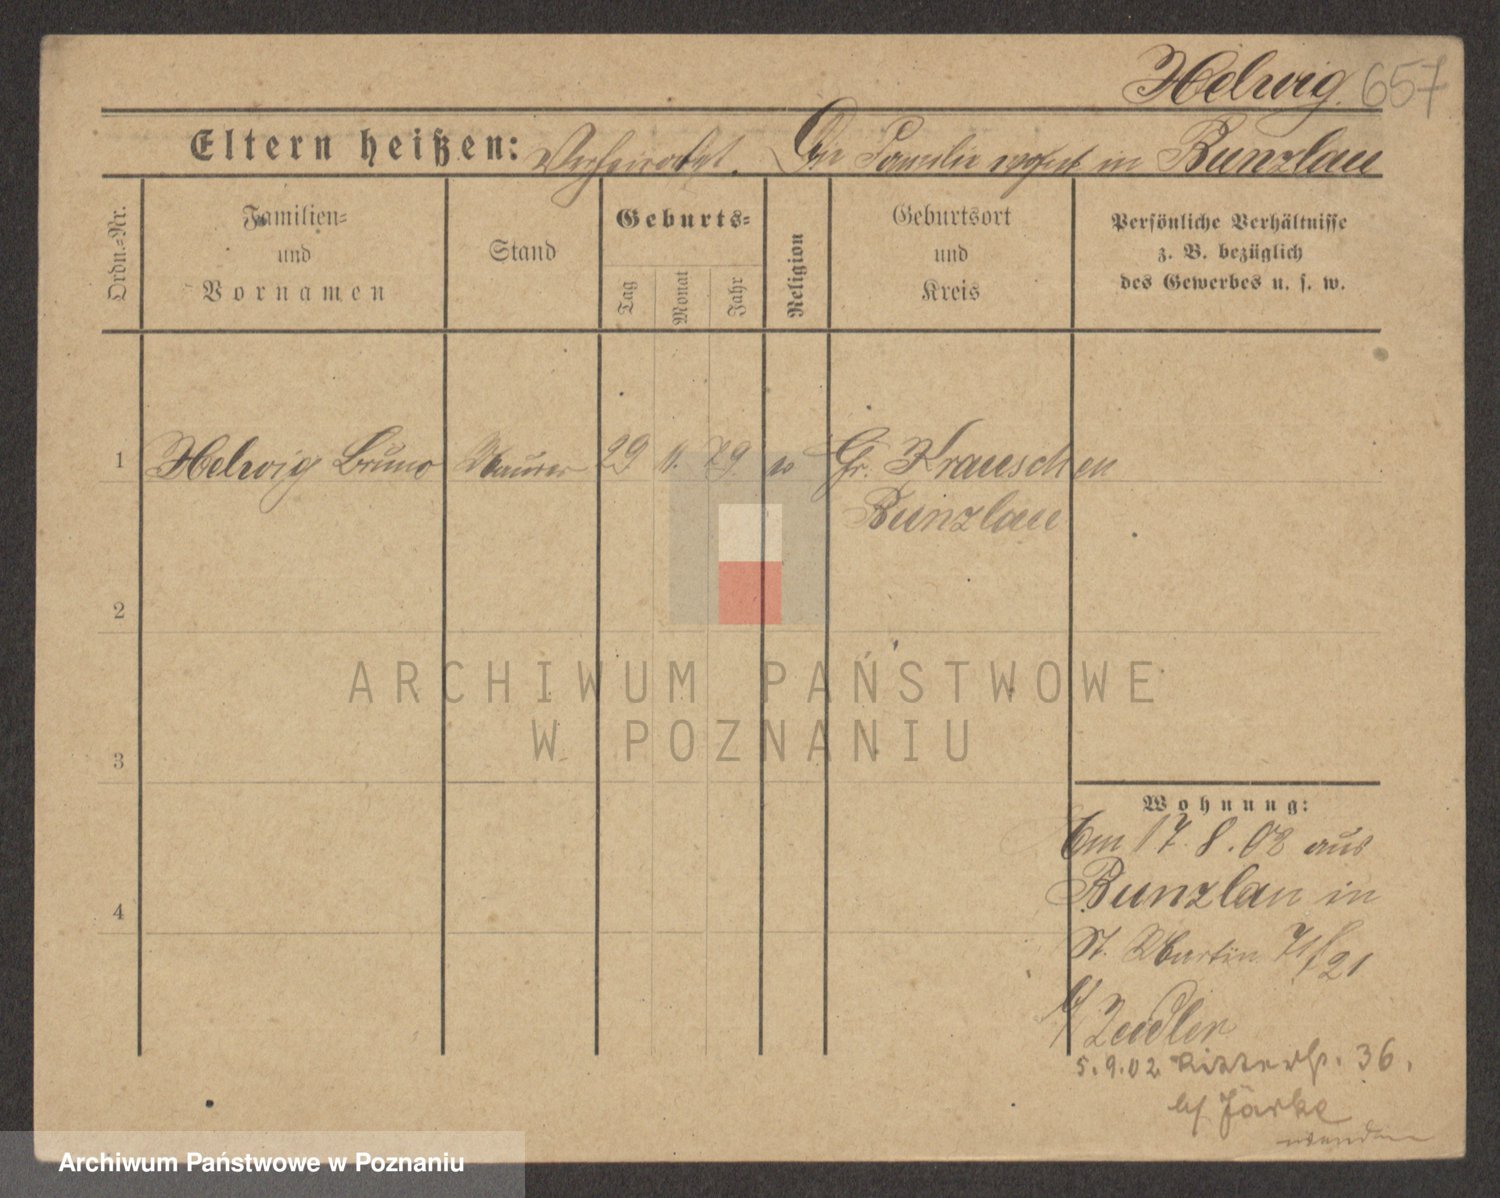 Helwig. 657
Eltern heißen: Verheiratet. Die Familie wohnt in Bunzlau
Ordn.-Nr.
Familien-
und
Vornamen
Stand
Geburts-
Tag
Monat
Jahr
Religion
Geburtsort
und
Kreis
Persönliche Verhältnisse
z. B. bezüglich
des Gewerbes u. s. w.
1 Helwig Bruno Maurer 29 11. 79. Gr. Krauschen
Bunzlau
2
3
4
ARCHIWUM PAŃSTWOWE
W POZNANIU
Wohnung:
Am 17. 8. 02 aus
Bunzlau in
St. Martin 71/21
b/ Zeidler
5.9.02 Ritterstr. 36.
bei Järke
wenden
Archiwum Państwowe w Poznaniu